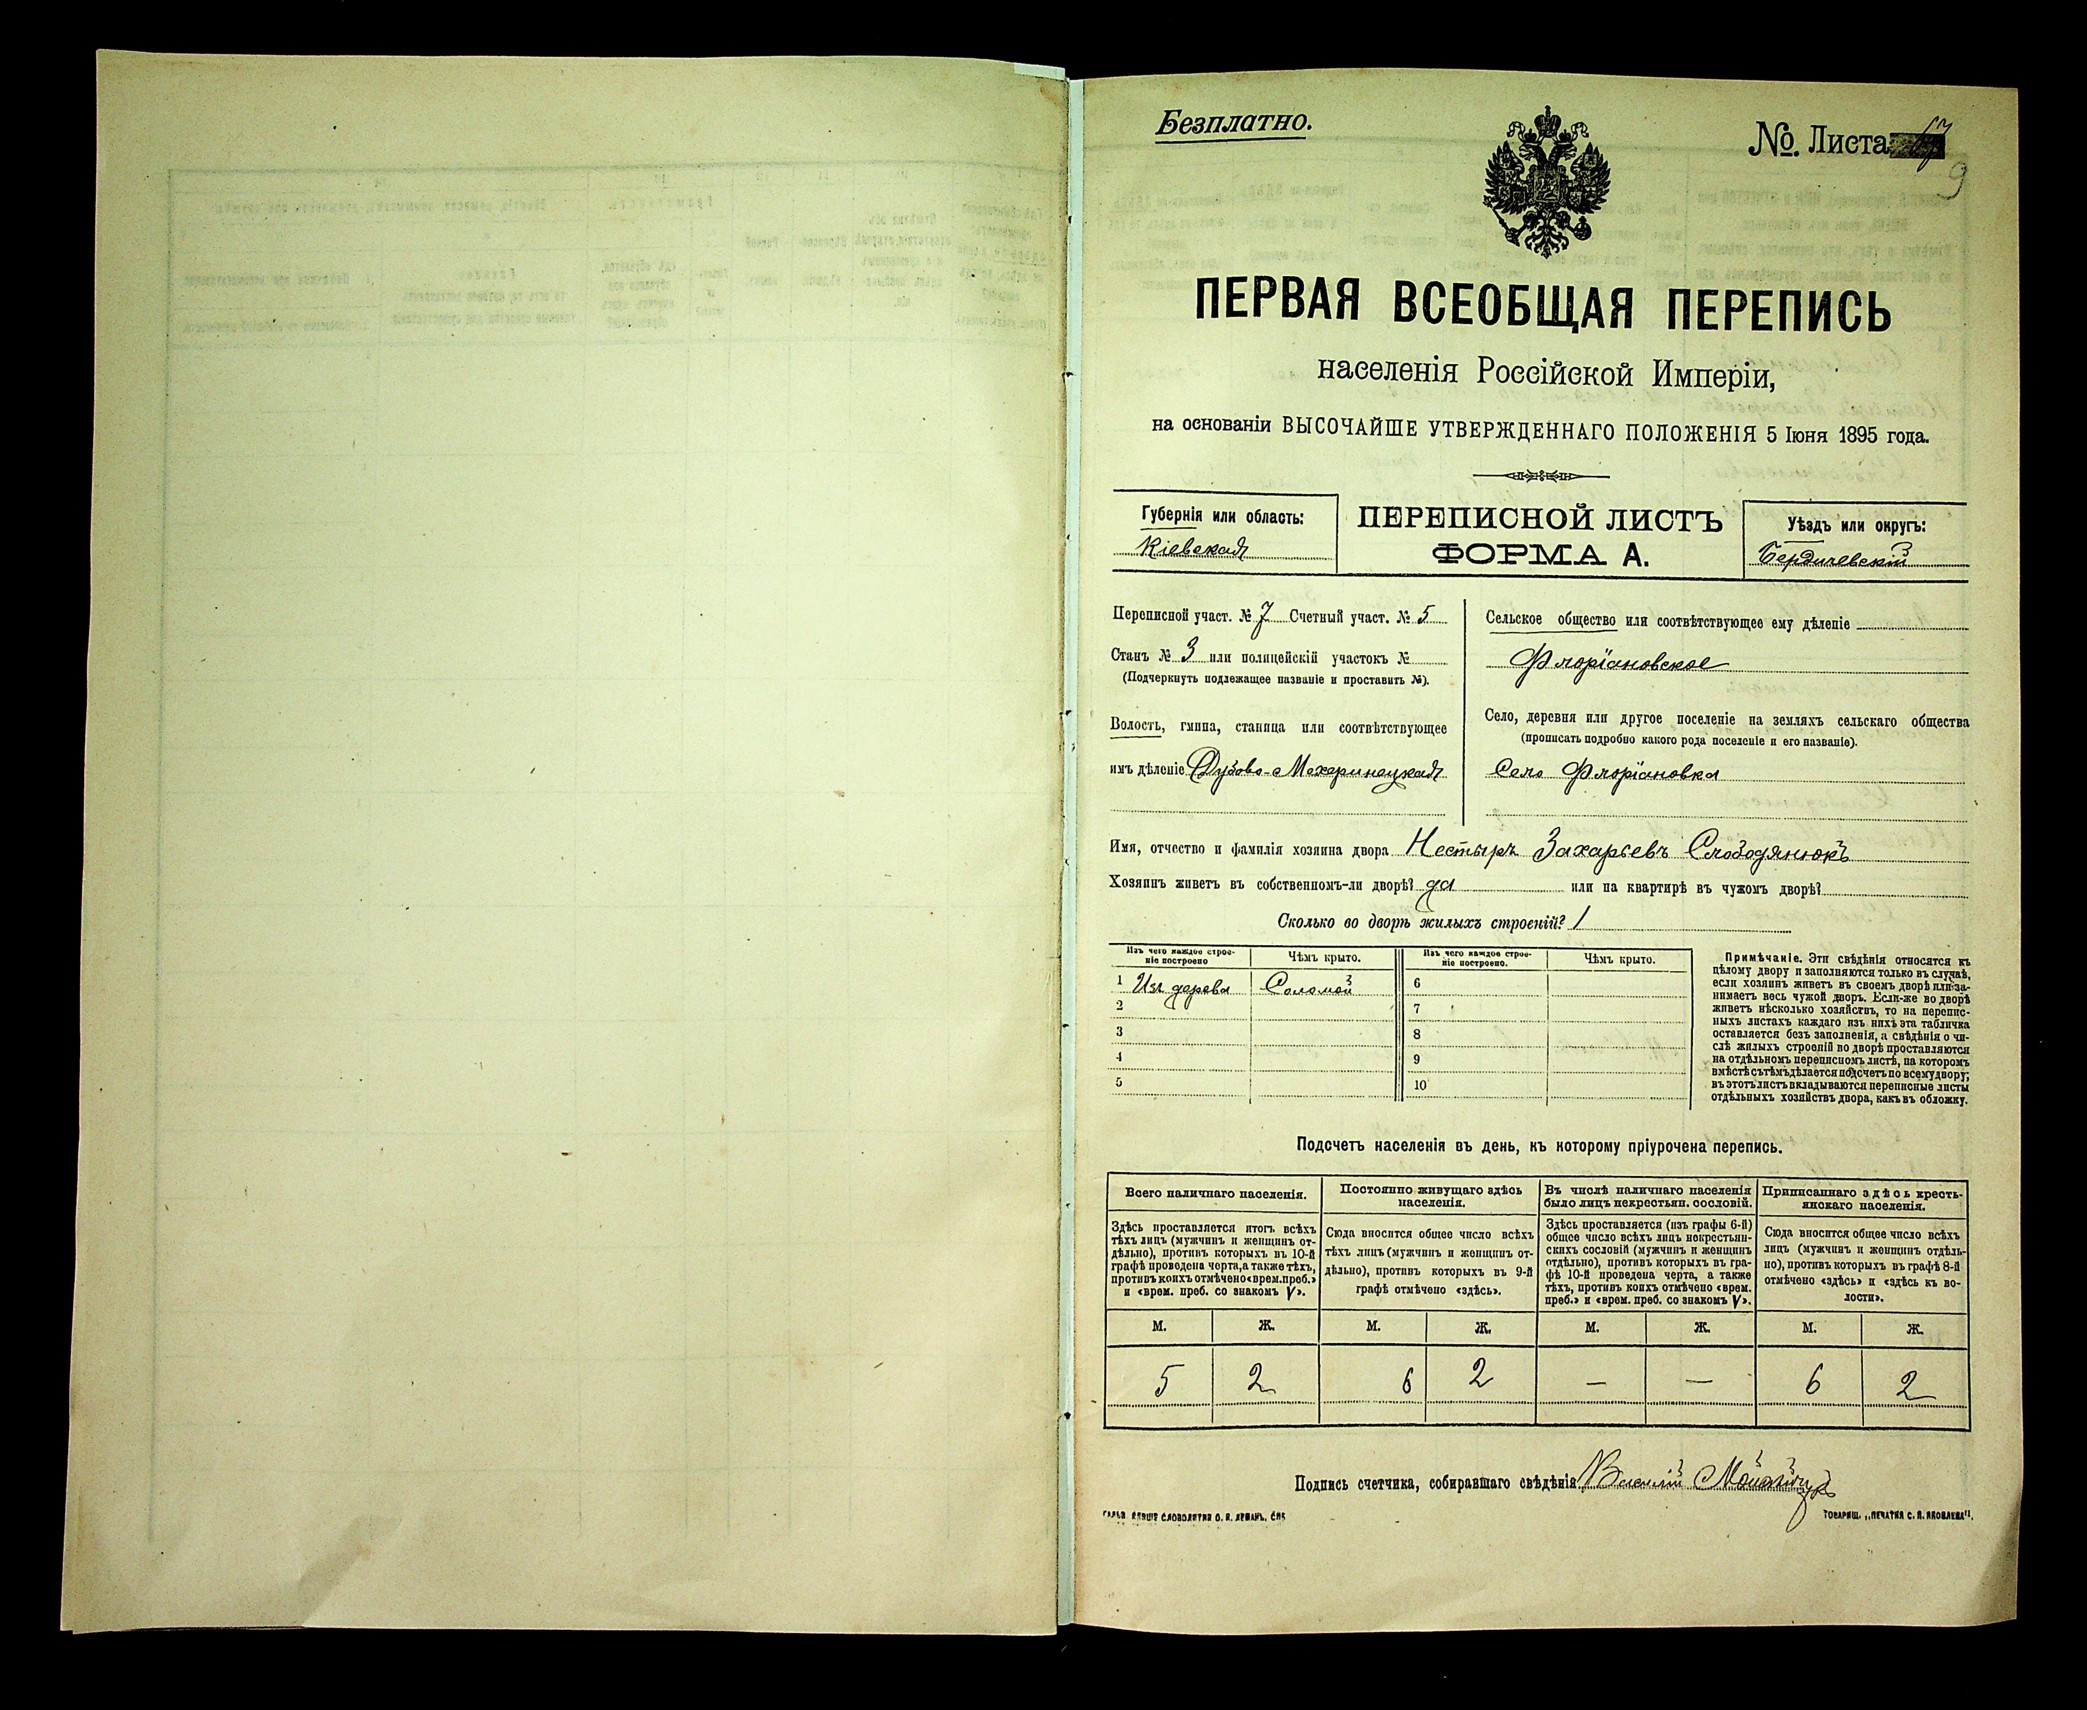 Безплатно.
№. Листа
9
ПЕРВАЯ ВСЕОБЩАЯ ПЕРЕПИСЬ
населенія Россійской Имперіи,
на основаніи ВЫСОЧАЙШЕ УТВЕРЖДЕННАГО ПОЛОЖЕНІЯ 5 Іюня 1895 года.
Губернія или область:
Кіевская
ПЕРЕПИСНОЙ ЛИСТЪ
ФОРМА А.
Уѣздъ или округъ:
Бердичевскій
Переписной участ. № 7 Счетный участ. № 5
Станъ № 3 или полицейскій участокъ №
(Подчеркнуть подлежащее названіе и проставить №).
Волость, гмина, станица или соотвѣтствующее
имъ дѣленіе Дубово-Махаринецкая
Сельское общество или соотвѣтствующее ему дѣленіе
Флоріановское
Село, деревня или другое поселеніе на земляхъ сельскаго общества
(прописать подробно какого рода поселеніе и его названіе).
Село Флоріановка
Имя, отчество и фамилія хозяина двора Нестыръ Захарьевъ Слободянюкъ
Хозяинъ живетъ въ собственномъ-ли дворѣ? да или на квартирѣ въ чужомъ дворѣ?
Сколько во дворѣ жилыхъ строеній? 1
Изъ чего каждое строе-
ніе построено
Чѣмъ крыто.
Изъ чего каждое строе-
ніе построено.
Чѣмъ крыто.
1 Изъ дерева Соломой 6
2 7
3 8
4 9
5 10
Примѣчаніе. Эти свѣдѣнія относятся къ
цѣлому двору и заполняются только въ случаѣ,
если хозяинъ живетъ въ своемъ дворѣ или за-
нимаетъ весь чужой дворъ. Если-же во дворѣ
живетъ нѣсколько хозяйствъ, то на перепис-
ныхъ листахъ каждаго изъ нихъ эта табличка
оставляется безъ заполненія, а свѣдѣнія о чи-
слѣ жилыхъ строеній во дворѣ проставляются
на отдѣльномъ переписномъ листѣ, на которомъ
вмѣстѣ съ тѣмъ дѣлается подсчетъ по всему двору;
въ этотъ листъ вкладываются переписные листы
отдѣльныхъ хозяйствъ двора, какъ въ обложку.
Подсчетъ населенія въ день, къ которому пріурочена перепись.
Всего наличнаго населенія.
Постоянно живущаго здѣсь
населенія.
Въ числѣ наличнаго населенія
было лицъ некрестьян. сословій.
Приписаннаго здѣсь кресть-
янскаго населенія.
Здѣсь проставляется итогъ всѣхъ
тѣхъ лицъ (мужчинъ и женщинъ от-
дѣльно), противъ которыхъ въ 10-й
графѣ проведена черта, а также тѣхъ,
противъ коихъ отмѣчено «врем. преб.»
и «врем. преб. со знакомъ V».
Сюда вносится общее число всѣхъ
тѣхъ лицъ (мужчинъ и женщинъ от-
дѣльно), противъ которыхъ въ 9-й
графѣ отмѣчено «здѣсь».
Здѣсь проставляется (изъ графы 6-й)
общее число всѣхъ лицъ некрестьян-
скихъ сословій (мужчинъ и женщинъ
отдѣльно), противъ которыхъ въ гра-
фѣ 10-й проведена черта, а также
тѣхъ, противъ коихъ отмѣчено «врем.
преб.» и «врем. преб. со знакомъ V».
Сюда вносится общее число всѣхъ
лицъ (мужчинъ и женщинъ отдѣль-
но), противъ которыхъ въ графѣ 8-й
отмѣчено «здѣсь» и «здѣсь къ во-
лости».
М. Ж. М. Ж. М. Ж. М. Ж.
5 2 6 2 — — 6 2
Подпись счетчика, собиравшаго свѣдѣнія Василій
ТОВАРИЩ. „ПЕЧАТНЯ С. П. ЯКОВЛЕВА".